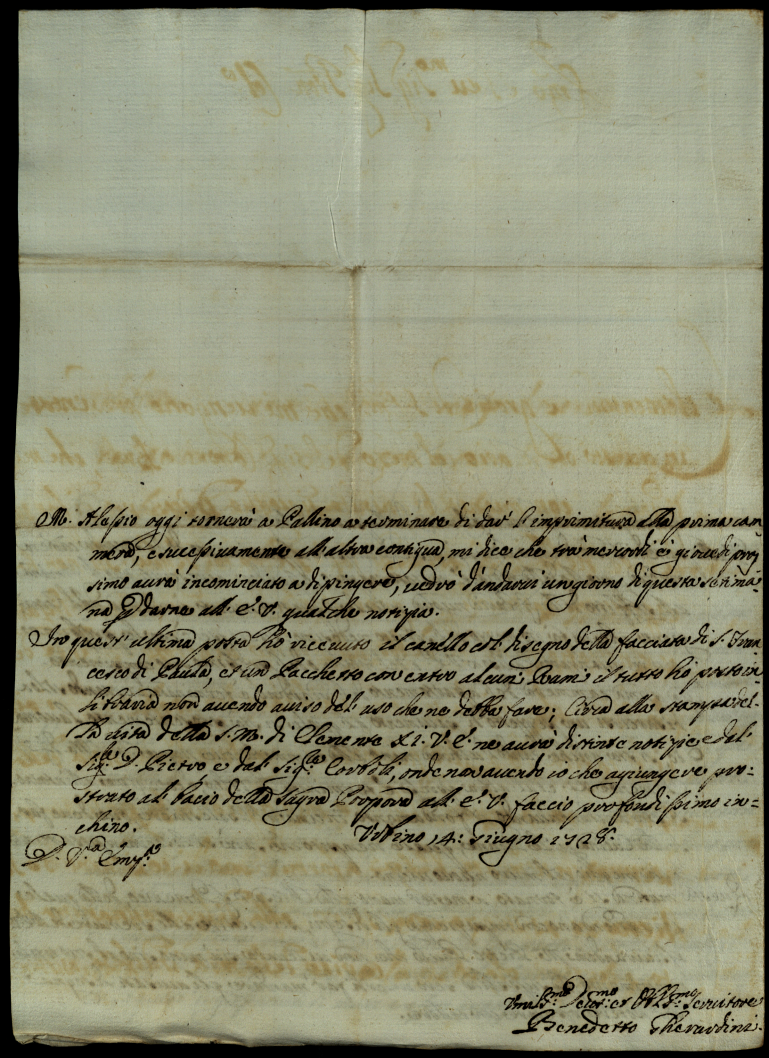 M. Alessio oggi tornerà a Pallino a terminare di dar l'imprimitura alla prima cam
mera, e successivamente all'altra contigua, mi dice che trà mercordi e giovedi pros
simo aurà incominciato a dipingere, vedrò d'andarui un giorno di questa setima
na p darne all' E. V. qualche notizia.
In quest'ultima posta hò riceuuto il canello col disegno della facciata di S. Fran
cesco di Paula, et un Pacchetto con entro alcuni Rami il tutto hò posto in
libraria non auendo auiso del uso che ne debba fare; Circa alla stampa del-
la vita della S. M. di Clemente XI. V. E. ne aurà distinte notizie e dal
Sig.r D. Pietro e dal Sig.r Corboli, onde non auendo io che agiungere pro-
strato al bacio della Sagra Porpora all' E. V. faccio profondissimo in-
chino.
Vrbino 14: Giugno 1728.
D. V.ra Em.za
Vmil.mo Deuot.mo et Obl.mo Seruitore
Benedetto Gherardini